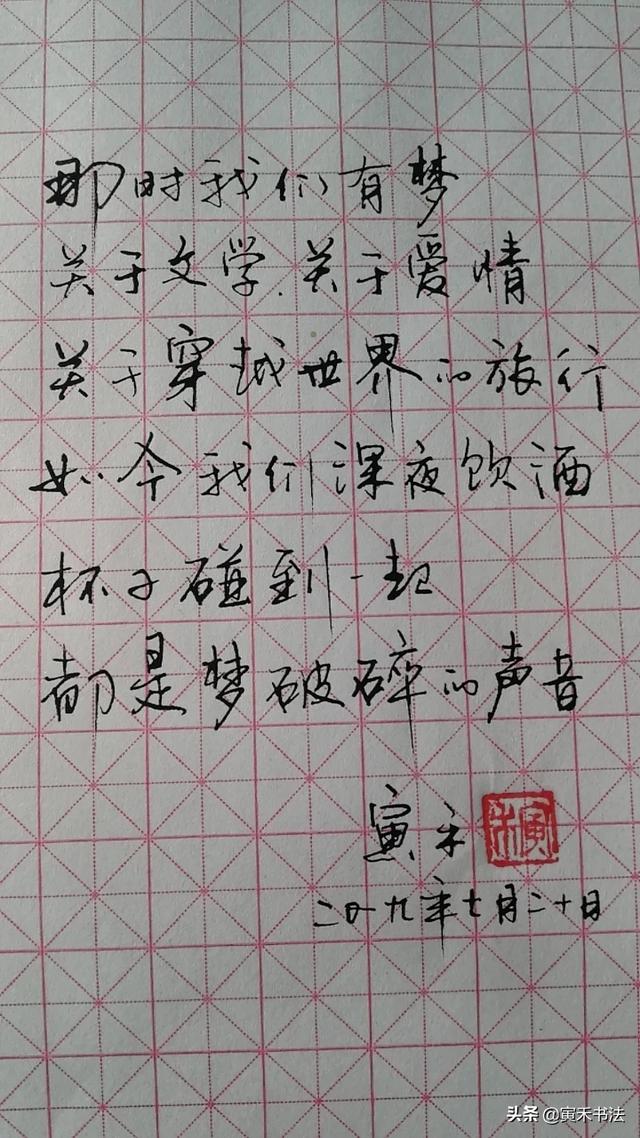 那时我们有梦
关于文学.关于爱情
关于穿越世界的旅行
如今我们深夜饮酒
杯子碰到一起
都是梦破碎的声音
寅禾
寅禾
二〇一九年七月二十日
头条 @寅禾书法